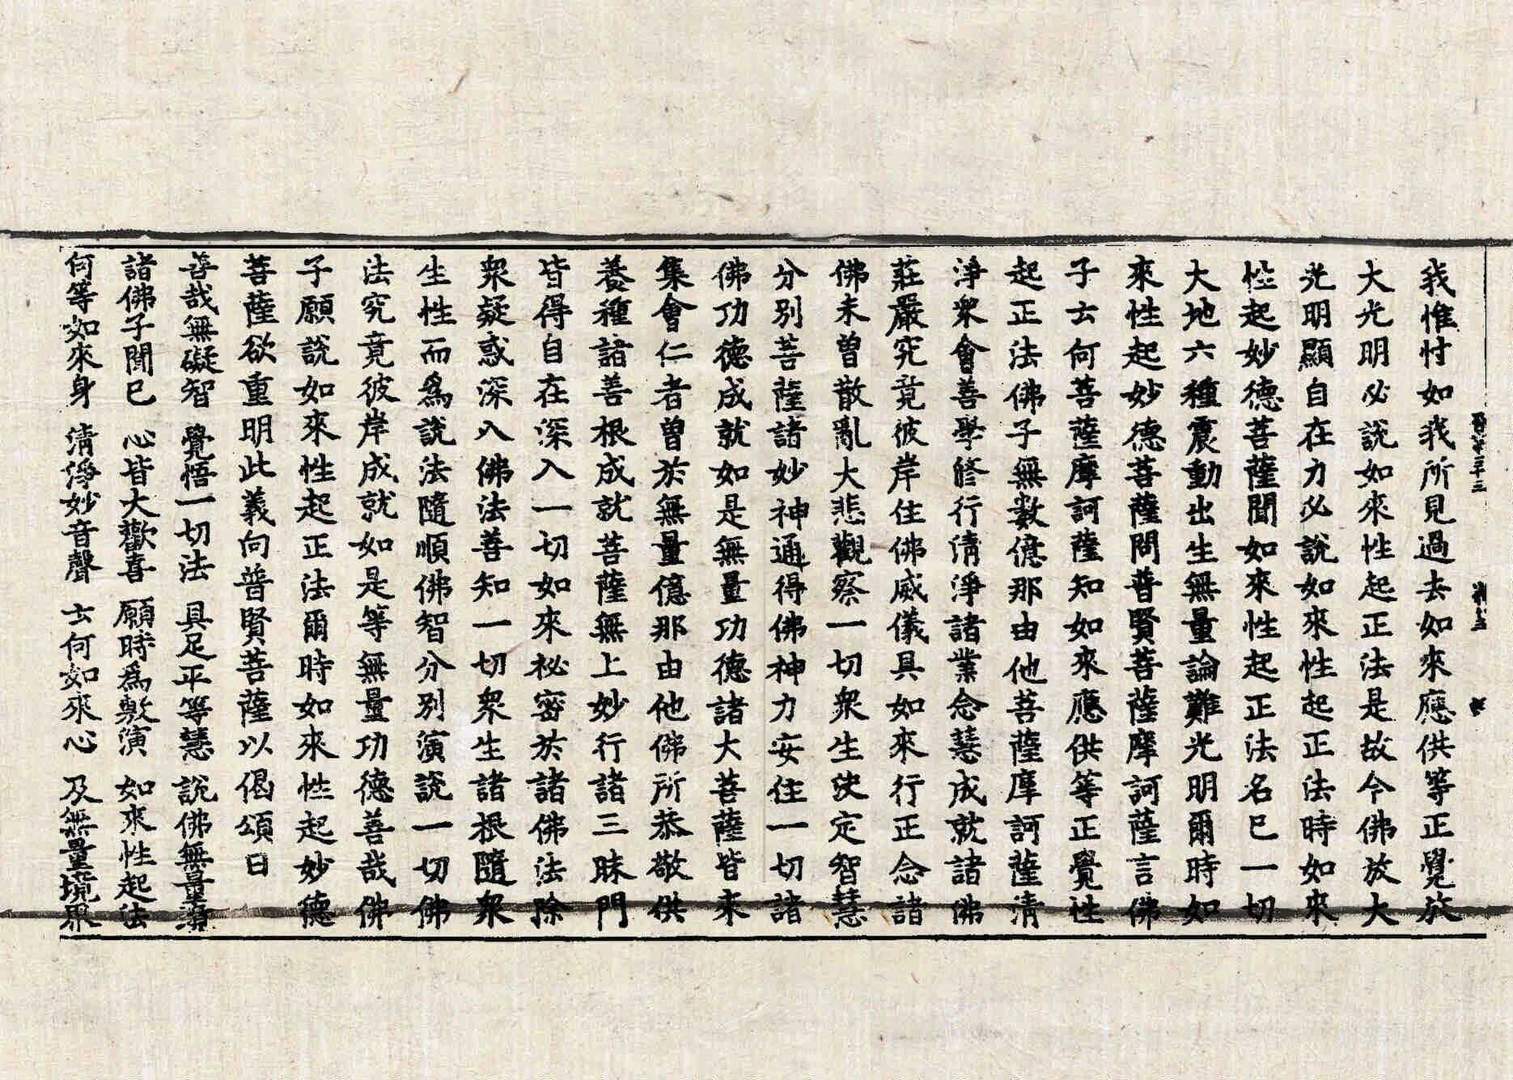 我惟忖如我所見過去如來應供等正覺放
大光明必說如來性起正法是故今佛放大
光明顯自在力必說如來性起正法時如來
性起妙德菩薩聞如來性起正法名已一切
大地六種震動出生無量論難光明爾時如
來性起妙德菩薩問普賢菩薩摩訶薩言佛
子云何菩薩摩訶薩知如來應供等正覺性
起正法佛子無數億那由他菩薩摩訶薩清
淨衆會善學修行清淨諸業念慧成就諸佛
莊嚴究竟彼岸住佛威儀具如來行正念諸
佛未曾散亂大悲觀察一切衆生決定智慧
分別菩薩諸妙神通得佛神力安住一切諸
佛功德成就如是無量功德諸大菩薩皆來
集會仁者曾於無量億那由他佛所恭敬供
養種諸善根成就菩薩無上妙行諸三昧門
皆得自在深入一切如來祕密於諸佛法除
衆疑惑深入佛法善知一切衆生諸根隨衆
生性而爲說法隨順佛智分別演說一切佛
法究竟彼岸成就如是等無量功德善哉佛
子願說如來性起正法爾時如來性起妙德
菩薩欲重明此義向普賢菩薩以偈頌曰
善哉無礙智 覺悟一切法 具足平等慧 說佛無量境
諸佛子聞已 心皆大歡喜 願時爲敷演 如來性起法
何等如來身 清淨妙音聲 云何如來心 及無量境界